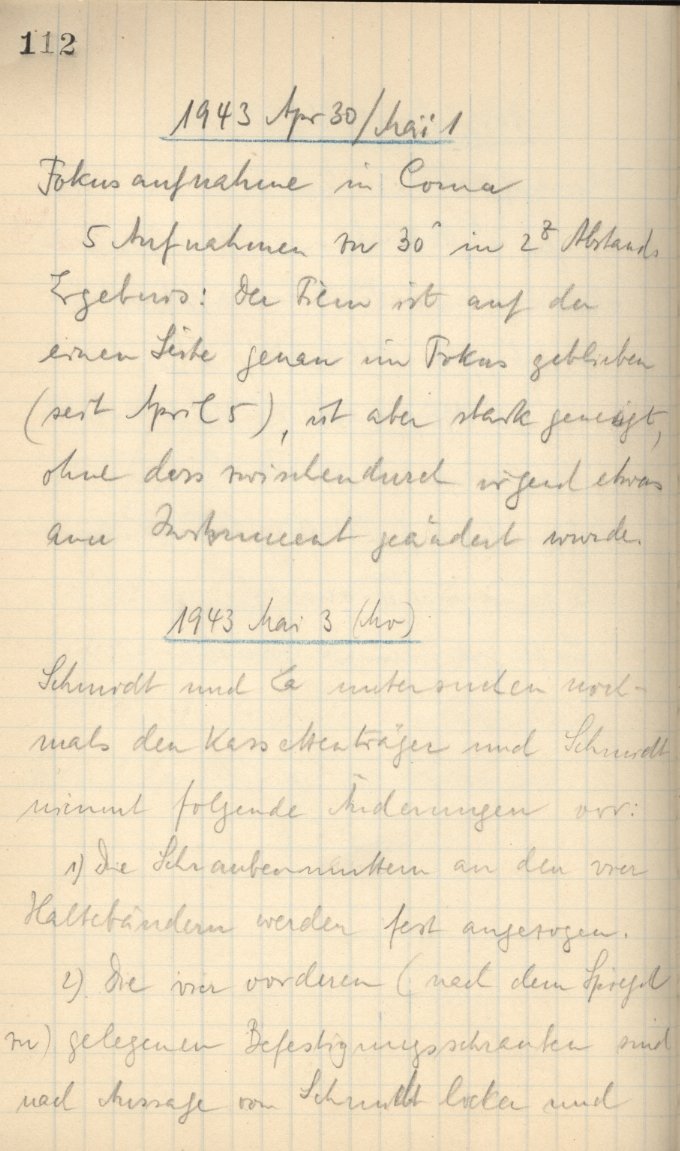 112
1943 Apr 30/Mai 1
Fokusaufnahme in Coma
5 Aufnahmen zu 30ˢ in 2ᶻ Abstand.
Ergebnis: Der Film ist auf der
einen Seite genau im Fokus geblieben
(seit April 5), ist aber stark geneigt,
ohne dass zwischendurch irgend etwas
am Instrument geändert wurde.
1943 Mai 3 (Mo)
Schmidt und untersuchen noch-
mals den Kassettenträger und Schmidt
nimmt folgende Änderungen vor:
1) Die Schraubenmuttern an den vier
Haltebändern werden fest angezogen.
2) Die vier vorderen (nach dem Spiegel
zu) gelegenen Befestigungsschrauben sind
nach Aussage von Schmidt locker und